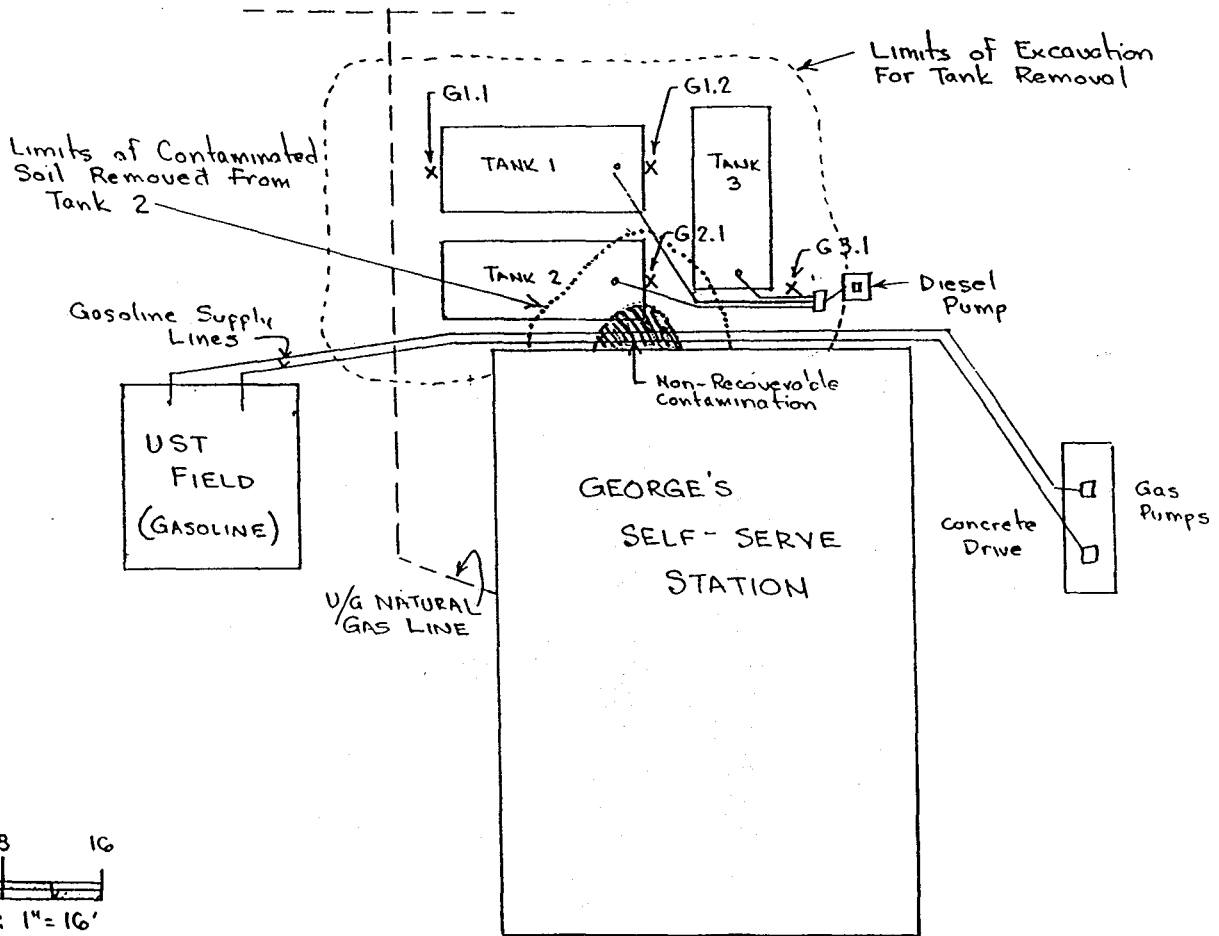 Limits of Excavation
For Tank Removal
G1.1
G1.2
Limits of Contaminated
Soil Removed From
Tank 2
TANK 1
TANK
3
G2.1
G3.1
TANK 2
Diesel
Pump
Gasoline Supply
Lines
Non-Recoverable
Contamination
UST
FIELD
(GASOLINE)
GEORGE'S
SELF-SERVE
STATION
Concrete
Drive
Gas
Pumps
U/G NATURAL
GAS LINE
8 16
: 1"=16'